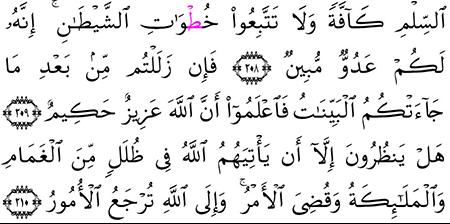 ٱلسِّلْمِ كَآفَّةً وَلَا تَتَّبِعُوا۟ خُطْوَٰتِ ٱلشَّيْطَٰنِ ۚ إِنَّهُۥ
لَكُمْ عَدُوٌّ مُّبِينٌ ٢٠٨ فَإِن زَلَلْتُم مِّنۢ بَعْدِ مَا
جَآءَتْكُمُ ٱلْبَيِّنَٰتُ فَٱعْلَمُوٓا۟ أَنَّ ٱللَّهَ عَزِيزٌ حَكِيمٌ ٢٠٩
هَلْ يَنظُرُونَ إِلَّآ أَن يَأْتِيَهُمُ ٱللَّهُ فِى ظُلَلٍ مِّنَ ٱلْغَمَامِ
وَٱلْمَلَٰٓئِكَةُ وَقُضِىَ ٱلْأَمْرُ ۚ وَإِلَى ٱللَّهِ تُرْجَعُ ٱلْأُمُورُ ٢١٠